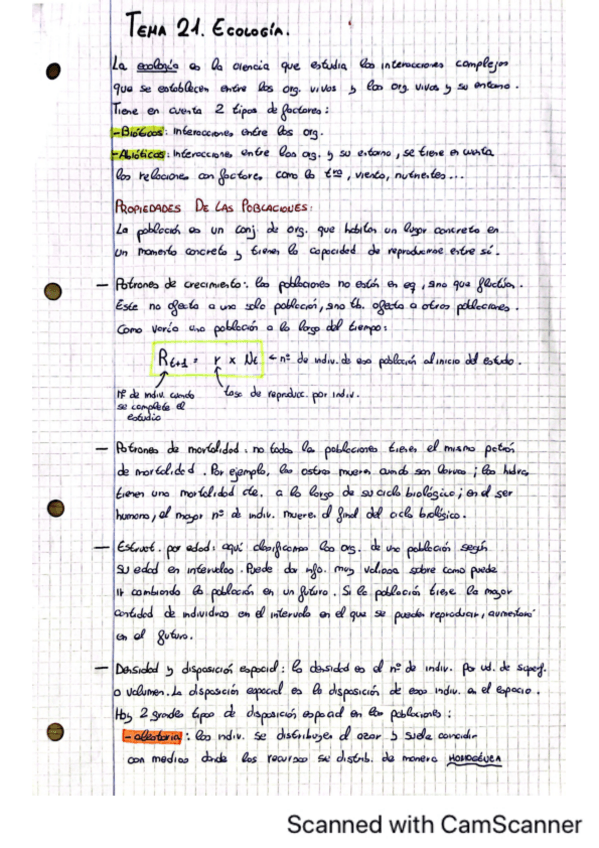 TEMA 21. ECOLOGÍA.
La ecología es la ciencia que estudia las interacciones complejas
que se establecen entre los org. vivos y los org vivos y su entorno.
Tiene en cuenta 2 tipos de factores:
- Bióticos: interacciones entre los org.
- Abióticos: interacciones entre los org. y su entorno, se tiene en cuenta
las relaciones con factores como la tra, viento, nutrientes...
PROPIEDADES DE LAS POBLACIONES:
La población es un conj. de org. que habitan un lugar concreto en
un momento concreto y tienen la capacidad de reproducirse entre sí.
— Patrones de crecimiento: las poblaciones no están en eq, sino que fluctúan.
Este no afecta a una sola población, sino tb. afecta a otras poblaciones.
Como varía una población a lo largo del tiempo:
Rt+1 = r x Nt ← nº de indiv. de esa población al inicio del estudio.
Nº de indiv. cuando
se complete el
estudio
tasa de reproducc. por indiv.
— Patrones de mortalidad: no todas las poblaciones tienen el mismo patrón
de mortalidad. Por ejemplo, las ostras mueren cuando son larvas; las hidras
tienen una mortalidad cte. a lo largo de su ciclo biológico; en el ser
humano, el mayor nº de indiv. muere al final del ciclo biológico.
— Estruct. por edad: aquí clasificamos los org. de una población según
su edad en intervalos. Puede dar info. muy valiosa sobre como puede
ir cambiando la población en un futuro. Si la población tiene la mayor
cantidad de individuos en el intervalo en el que se pueden reproducir, aumentará
en el futuro.
— Densidad y disposición espacial: la densidad es el nº de indiv. por ud. de superf.
o volumen. La disposición espacial es la disposición de esos indiv. en el espacio.
Hay 2 grandes tipos de disposición espacial en las poblaciones:
- aleatoria: los indiv. se distribuyen al azar y suele coincidir
con medios donde los recursos se distrib. de manera HOMOGÉNEA
Scanned with CamScanner